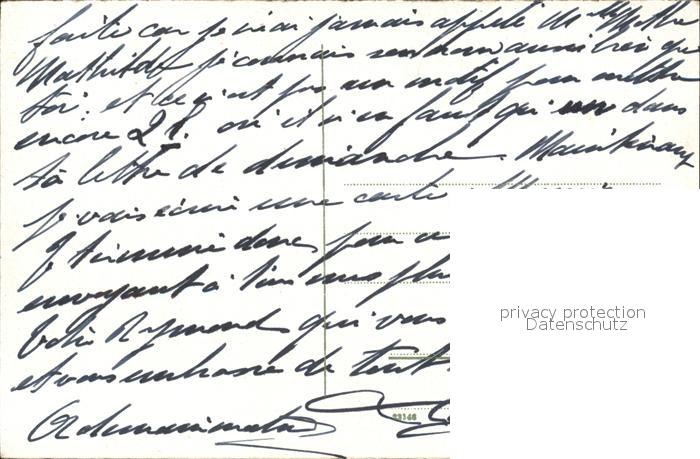 faite car je n'ai jamais appelé Mlle Mathe
Mathilde je connais son nom aussi bien que
toi. et ce n'est pas un motif pour mettre
encore 2 l. où il n'en faut qu'un dans
ta lettre de dimanche. Maintenant
je vais écrire une carte
Je termine donc pour
envoyant à tous mes plus
Votre Raymond qui vous
et vous embrasse de tout
A demain
privacy protection
Datenschutz
23146